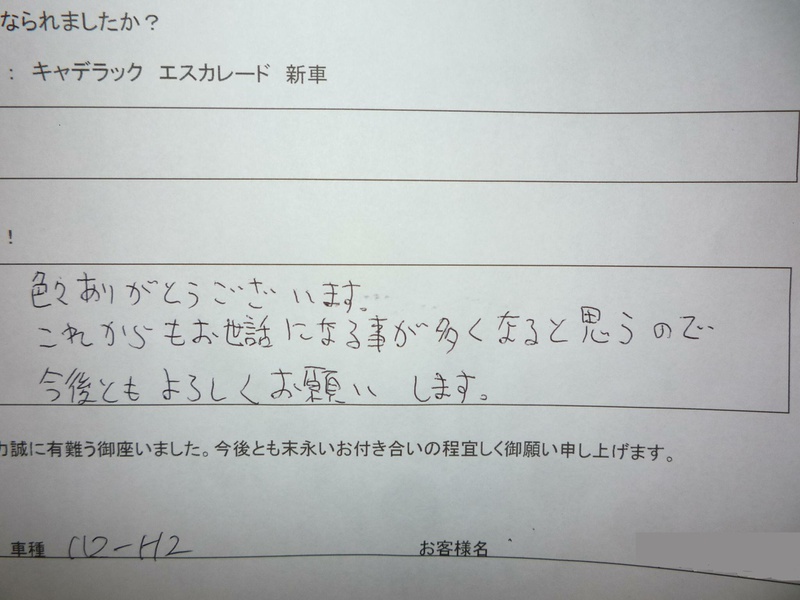 なられましたか？
： キャデラック エスカレード 新車
！
色々ありがとうございます。
これからもお世話になる事が多くなると思うので
今後ともよろしくお願いします。
力誠に有難う御座いました。今後とも末永いお付き合いの程宜しく御願い申し上げます。
車種 ハマーH2
お客様名